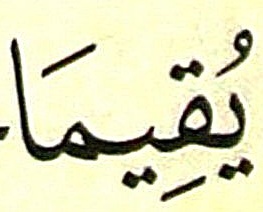 يُقِيمَا